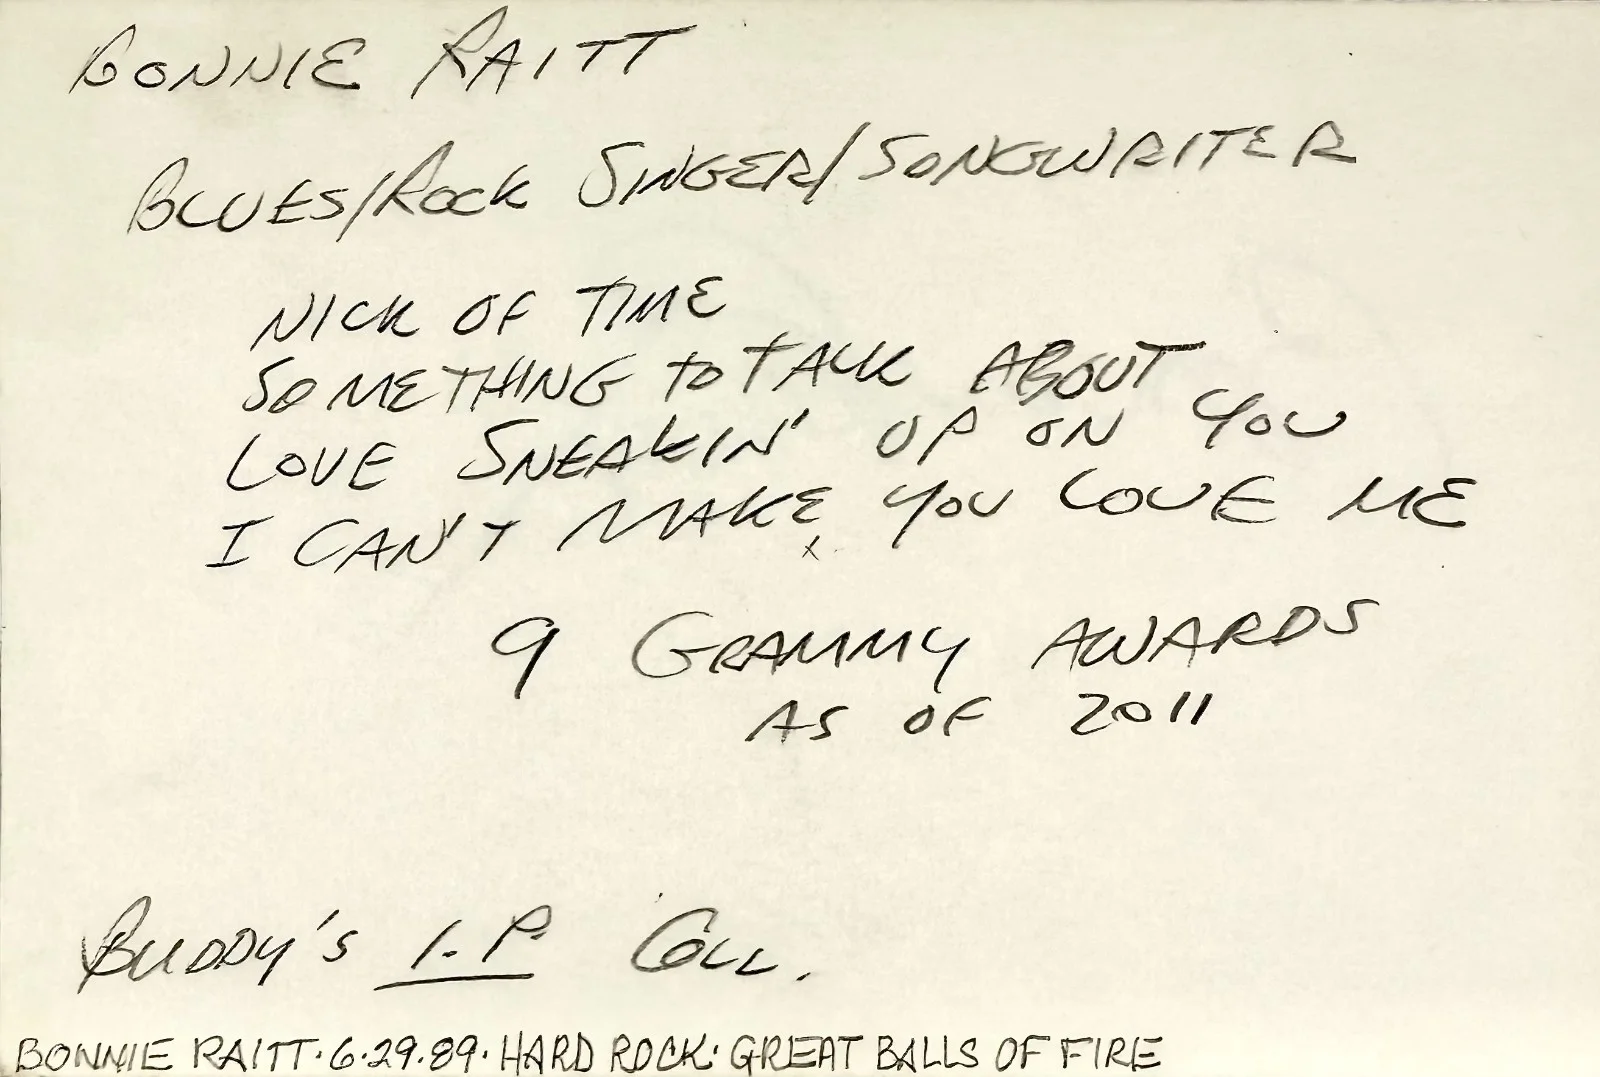 BONNIE RAITT
BLUES/ROCK SINGER/SONGWRITER
NICK OF TIME
SOMETHING TO TALK ABOUT
LOVE SNEAKIN' UP ON YOU
I CAN'T MAKE YOU LOVE ME
x
9 GRAMMY AWARDS
AS OF 2011
BUDDY'S I.P. COLL.
BONNIE RAITT·6·29·89·HARD ROCK: GREAT BALLS OF FIRE